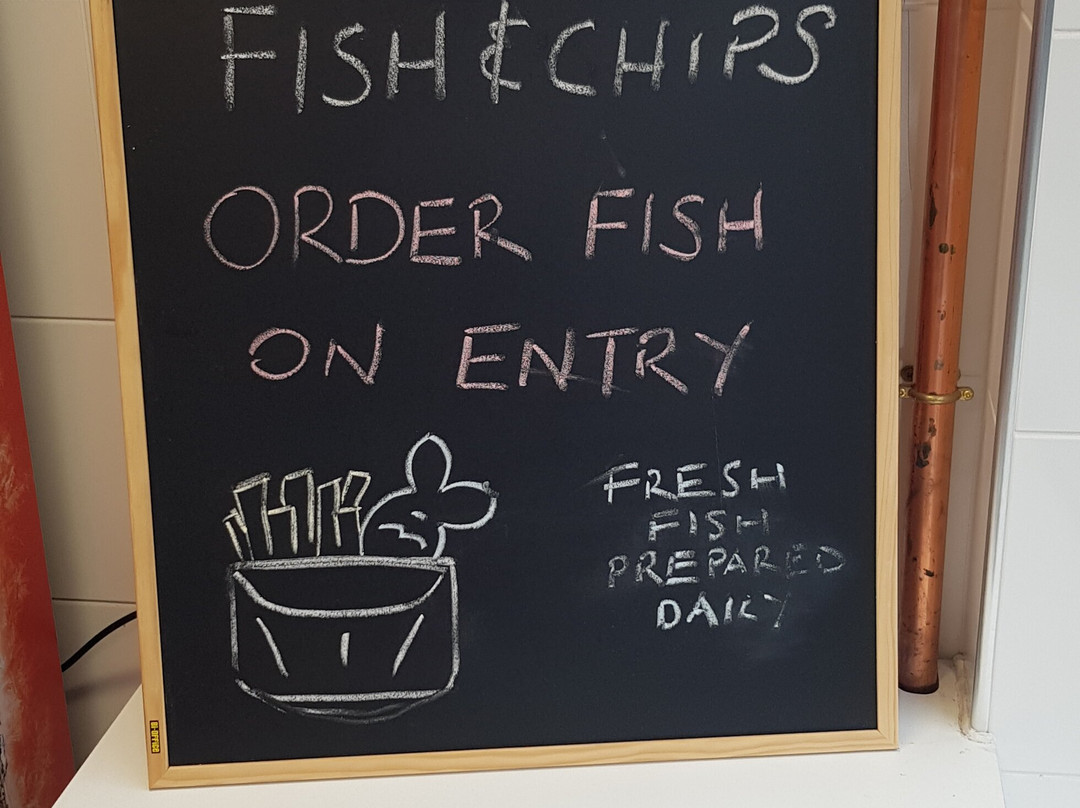 FISH & CHIPS
ORDER FISH
ON ENTRY
FRESH
FISH
PREPARED
DAILY
BI-OFFICE